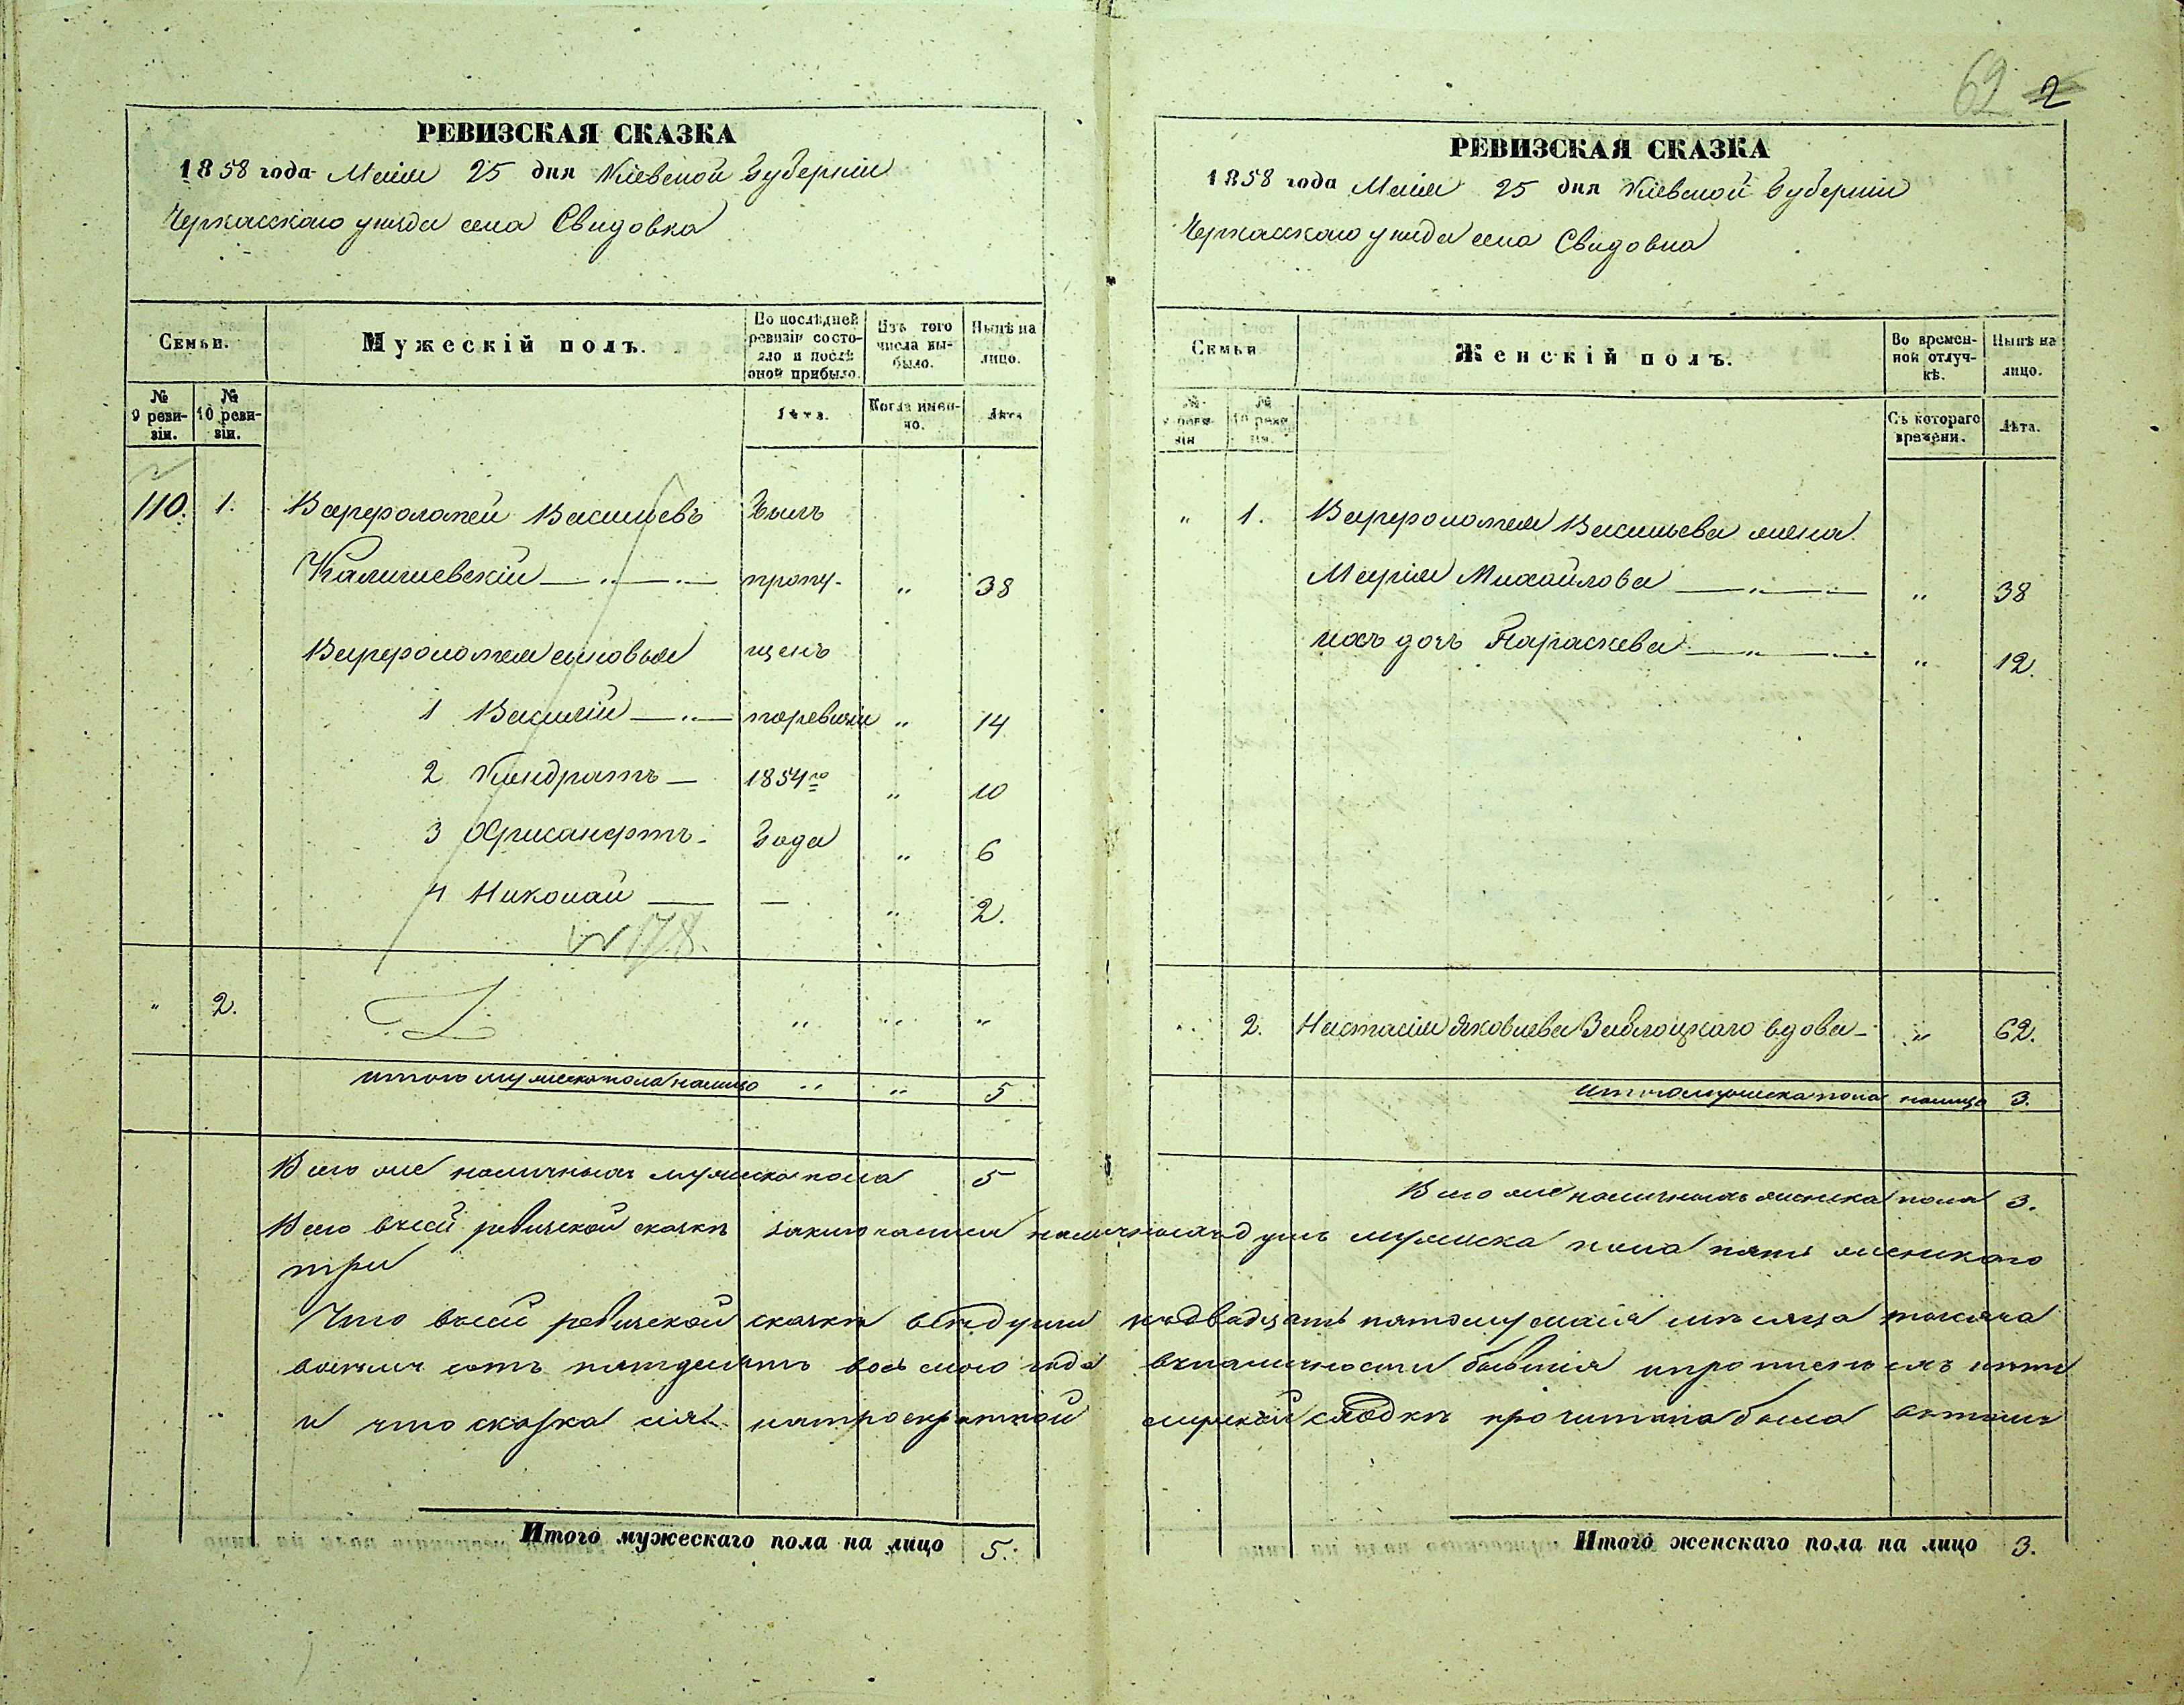 РЕВИЗСКАЯ СКАЗКА
1858 года Маія 25 дня Кіевской Губерніи
Черкасскаго уезда села Свидовка
Семьи.
Мужескій полъ.
По послѣдней ревизіи состояло и послѣ оной прибыло.
Изъ того числа выбыло.
Нынѣ на лицо.
№ 9 ревизіи.
№ 10 ревизіи.
Лѣта.
Когда именно.
Лѣта
110. 1. Варфоломей Васильевъ Былъ
Калишевскій — „ — пропу- „ 38
Варфоломея сыновья щенъ
1 Василій — „ — поревизіи „ 14
2 Кондратъ — 1854го „ 10
3 Хрисанфтъ - Года „ 6
4 Николай — — „ 2.
№ 178.
„ 2. „ „ „
итого мужеска пола налицо „ „ 5
Всего же наличныхъ мужеска пола 5
Итого мужескаго пола на лицо 5.
62 2
РЕВИЗСКАЯ СКАЗКА
1858 года Маія 25 дня Кіевской Губерніи
Черкасскаго уезда села Свидовка
Семьи
Женскій полъ.
Во временной отлучкѣ.
Нынѣ на лицо.
№ 9 ревизіи
№ 10 ревизіи.
Съ котораго времени.
Лѣта.
„ 1. Варфоломея Васильева жена
Марія Михайлова — „ — „ 38
ихъ дочь Параскева — „ — „ 12.
„ 2. Настасія Яковлева Заблоцкаго вдова - „ 62.
пола налицо 3.
Всего же наличныхъ женска пола 3.
Всего въ сей ревизской сказкѣ заключается наличныхъ душъ мужеска пола пять женскаго
три
Что въ сей ревизской сказкѣ всѣ души к двадцать пятому маія мѣсяца тысяча
восемь сотъ пятдесятъ восьмого года въ наличности бывшія и пропущенныхъ нетъ
и что сказка сія мирской сходкѣ прочитана была
Итого женскаго пола на лицо 3.